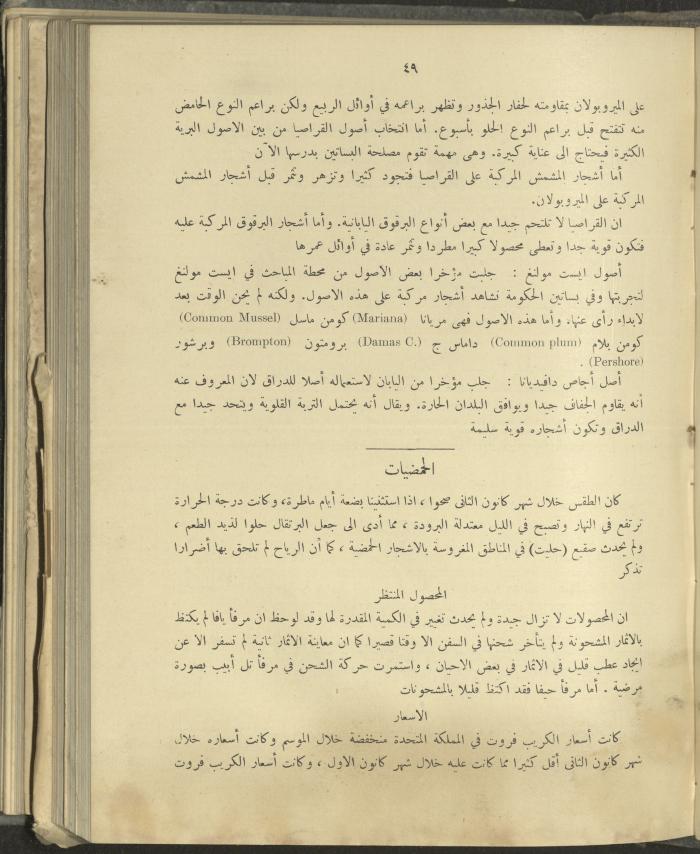 ٤٩
على الميروبولان بمقاومته لحفار الجذور وتظهر براعمه في أوائل الربيع ولكن براعم النوع الحامض
منه تتفتح قبل براعم النوع الحلو بأسبوع. أما انتخاب أصول القراصيا من بين الاصول البرية
الكثيرة فيحتاج الى عناية كبيرة. وهى مهمة تقوم مصلحة البساتين بدرسها الآن
أما أشجار المشمش المركبة على القراصيا فتجود كثيرا وتزهر وتثمر قبل أشجار المشمش
المركبة على الميروبولان.
ان القراصيا لا تلتحم جيدا مع بعض أنواع البرقوق اليابانية. وأما أشجار البرقوق المركبة عليه
فتكون قوية جدا وتعطى محصولا كبيرا مطردا وتثمر عادة في أوائل عمرها
أصول ايست مولنغ : جلبت مؤخرا بعض الاصول من محطة المباحث في ايست مولنغ
لتجربتها وفي بساتين الحكومة تشاهد أشجار مركبة على هذه الاصول. ولكنه لم يحن الوقت بعد
لابداء رأى عنها. وأما هذه الاصول فهى مريانا (Mariana) كومن ماسل (Common Mussel)
كومن بلام (Common plum) داماس ج (Damas C.) برومتون (Brompton) وبرشور
(Pershore) .
أصل أجاص دافيديانا : جلب مؤخرا من اليابان لاستعماله أصلا للدراق لان المعروف عنه
أنه يقاوم الجفاف جيدا ويوافق البلدان الحارة. ويقال أنه يحتمل التربة القلوية ويتحد جيدا مع
الدراق وتكون أشجاره قوية سليمة
الحمضيات
كان الطقس خلال شهر كانون الثانى صحوا ، اذا استثنينا بضعة أيام ماطرة، وكانت درجة الحرارة
ترتفع في النهار وتصبح في الليل معتدلة البرودة ، مما أدى الى جعل البرتقال حلوا لذيد الطعم ،
ولم يحدث صقيع (حليت) في المناطق المغروسة بالاشجار الحمضية ، كما أن الرياح لم تلحق بها أضرارا
تذكر
المحصول المنتظر
ان المحصولات لا تزال جيدة ولم يحدث تغيير في الكمية المقدرة لها وقد لوحظ ان مرفأ يافا لم يكتظ
بالاثمار المشحونة ولم يتأخر شحنها في السفن الا وقتا قصيرا كما ان معاينة الاثمار ثانية لم تسفر الا عن
ايجاد عطب قليل في الاثمار في بعض الاحيان ، واستمرت حركة الشحن في مرفأ تل أبيب بصورة
مرضية . أما مرفأ حيفا فقد اكتظ قليلا بالمشحونات
الاسعار
كانت أسعار الكريب فروت في المملكة المتحدة منخفضة خلال الموسم وكانت أسعاره خلال
شهر كانون الثانى أقل كثيرا مما كانت عليه خلال شهر كانون الاول ، وكانت أسعار الكريب فروت